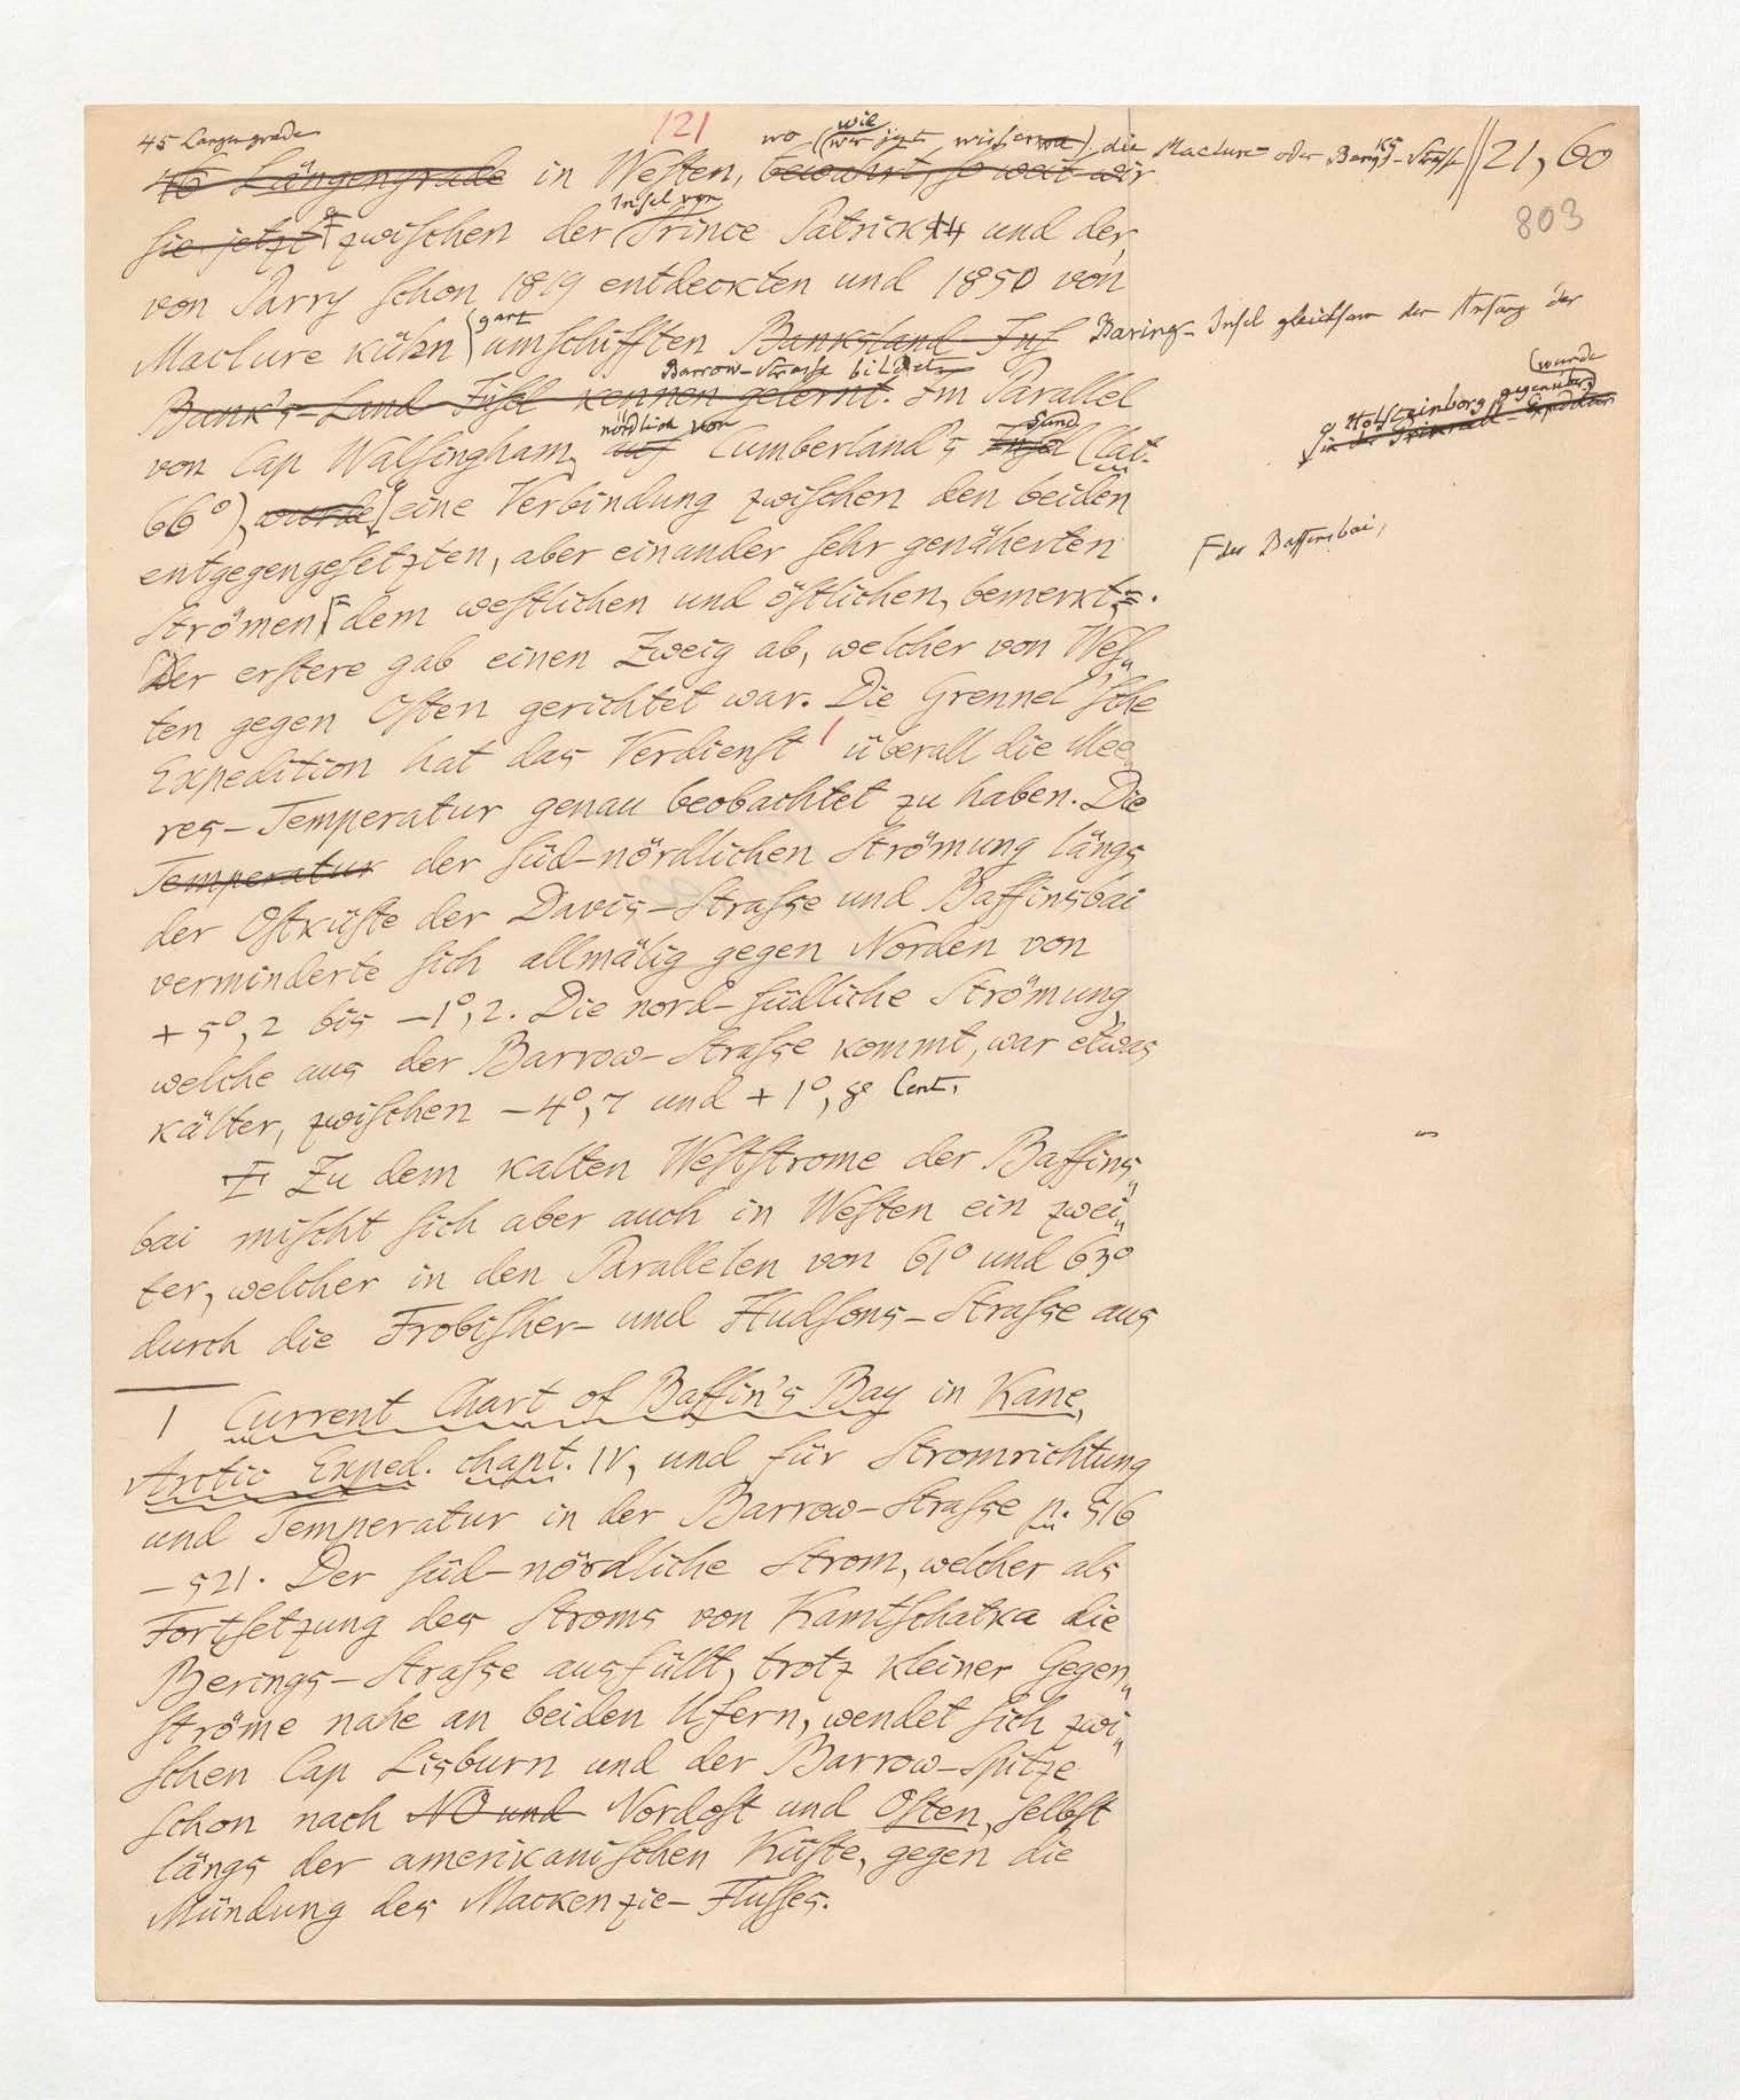 45 Längengrade
121
wo (wie wir jetzt wissen) die Maclure- oder Banks-Strasse || 21, 60
46 Längengrade in Westen, bewahrt, so weit wir
803
sie jetzt zwischen der Insel von Prince Patrick und der
von Parry schon 1819 entdeckten und 1850 von
Maclure kühn ganz umschifften Banksland Ins Barings-Insel gleichsam den Anfang der
Bank's-Land Insel kennen gelernt. Barrow-Strasse bildet. Im Parallel
von Cap Walsingham, auf nördlich von Cumberland's Insel Sund (Lat.
a Holsteinborg gegenüber) (wurde
in der Expedition
66°), wurde eine Verbindung zwischen den beiden
entgegengesetzten, aber einander sehr genäherten
F der Baffinsbai,
Strömen F dem westlichen und östlichen, bemerkt.
Der erstere gab einen Zweig ab, welcher von Wes„
ten gegen Osten gerichtet war. Die Grennel'sche
Expedition hat das Verdienst 1 überall die Mee„
res-Temperatur genau beobachtet zu haben. Die
Temperatur der süd-nördlichen Strömung längs
der Ostküste der Davis-Strasse und Baffinsbai
verminderte sich allmälig gegen Norden von
+5°,2 bis -1°,2. Die nord-südliche Strömung,
welche aus der Barrow-Strasse kommt, war etwas
kälter, zwischen -4°,7 und +1°,8 Cent.
Zu dem kalten Weststrome der Baffins„
bai mischt sich aber auch in Westen ein zwei„
ter, welcher in den Parallelen von 61° und 63°
durch die Frobisher- und Hudsons-Strasse aus
1 Current Chart of Baffin's Bay in Kane,
Arctic Exped. chapt. IV, und für Stromrichtung
und Temperatur in der Barrow-Strasse p. 516
-521. Der süd-nördliche Strom, welcher als
Fortsetzung des Stroms von Kamtschatka die
Berings-Strasse ausfüllt, trotz kleiner Gegen„
ströme nahe an beiden Ufern, wendet sich zwi„
schen Cap Lisburn und der Barrow-Spitze
schon nach NO und Nordost und Osten, selbst
längs der amerikanischen Küste, gegen die
Mündung des Mackenzie-Flusses.